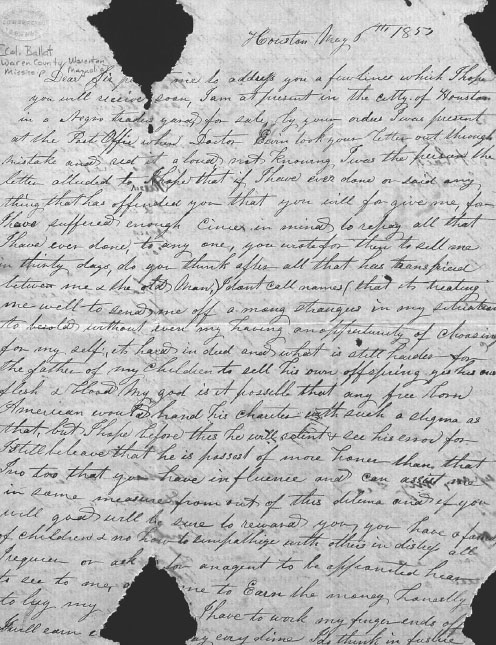 Houston May 6th 1853
Col. Ballot
Waren County Waverton
Missisp.
Dear Sir me to address you a few lines which I hope
you will receive soon, I am at present in the citty of Houston
in a Negro traders yard, for sale, by your orders I was present
at the Post Office when Doctor Ewen took your letter out through
mistake and red it a loud, not knowing I was the person the
letter alluded to I hope that if I have ever done or said any
thing that has offended you that you will for give me, for
I have suffered enough Cince in mind to repay all that
I have ever done to any one, you wrote for them to sell me
in thirty days, do you think after all that has transpired
between me & the old man, (I dont call names) that its treating
me well to send me off a mong strangers in my situation
to be sold without even my having an opportunity of choosing
for my self, its hard in deed and what is still harder for
the father of my children to sell his own offspring yes his own
flesh & blood My god is it possible that any free born
American would hand his charicter with such a stigma as
that, but I hope before this he will relent & see his error for
I still beleave that he is possest of more honer than that
I no too that you have influence and can assist me
in some measure from out of this dilema and if you
will god will be sure to reward you, you have a family
of children & no how to sempathize with others in distress all
I require or ask for an agent to be appointed hear
to see to me, me to Earn the money Honestly
to buy my I have to work my finger ends off
I will earn every dime I do think in justice